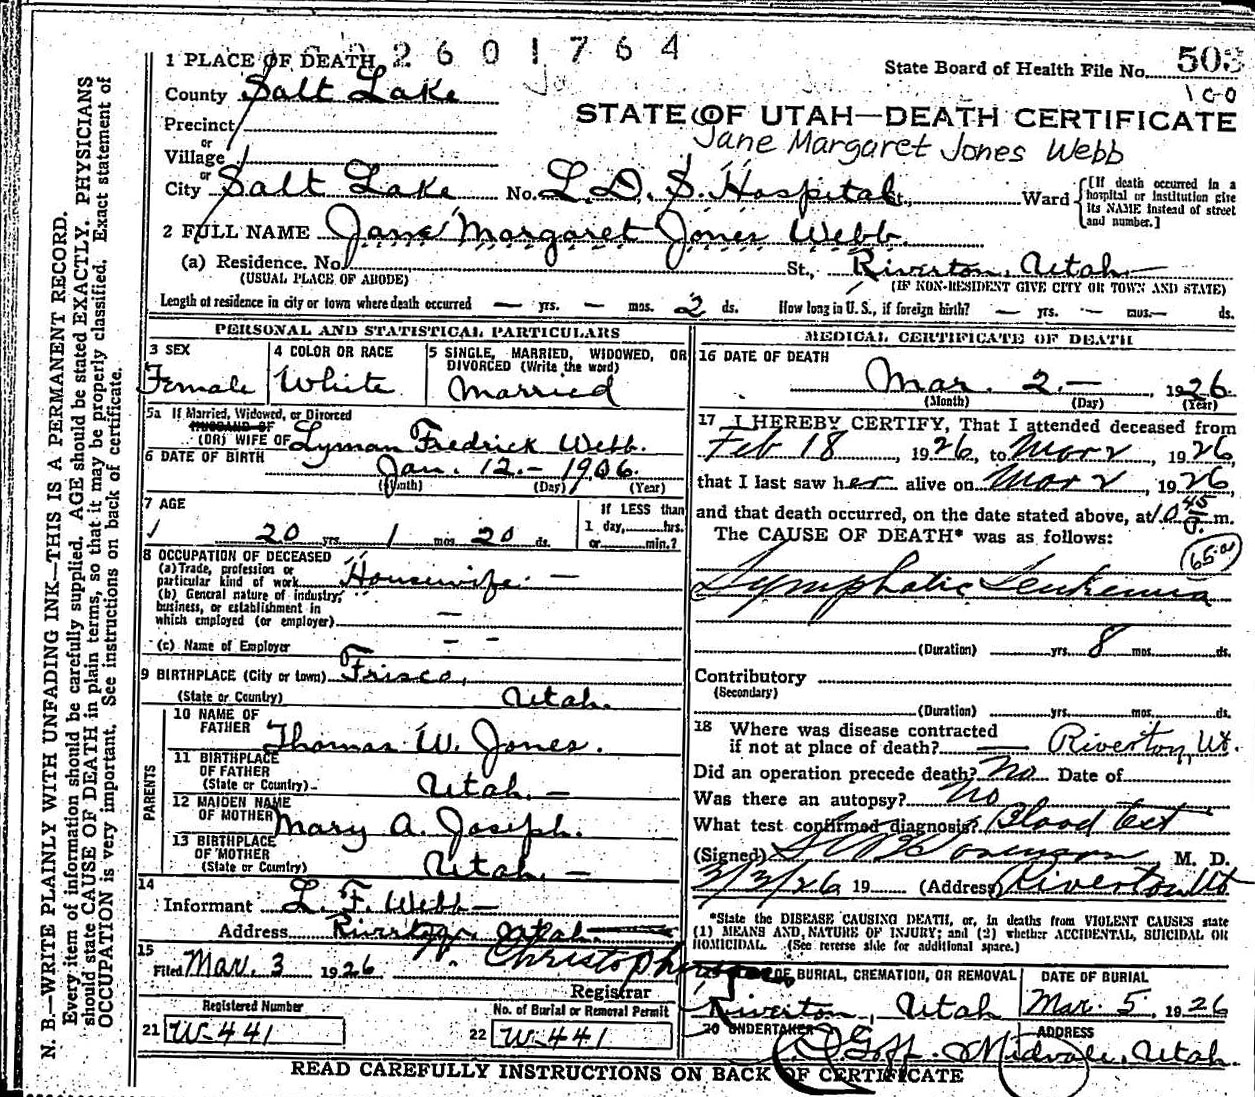 2 6 0 1 7 6 4
1 PLACE OF DEATH
State Board of Health File No. 503
County Salt Lake
100
STATE OF UTAH—DEATH CERTIFICATE
Precinct
Jane Margaret Jones Webb
or
Village
or
City Salt Lake No. L. D. S. Hospital St., Ward [If death occurred in a hospital or institution give its NAME instead of street and number.]
2 FULL NAME Jane Margaret Jones Webb.
(a) Residence. No. St., Riverton, Utah
(USUAL PLACE OF ABODE) (IF NON-RESIDENT GIVE CITY OR TOWN AND STATE)
Length of residence in city or town where death occurred — yrs. — mos. 2 ds. How long in U. S., if foreign birth? — yrs. — mos. — ds.
PERSONAL AND STATISTICAL PARTICULARS
3 SEX
Female
4 COLOR OR RACE
White
5 SINGLE, MARRIED, WIDOWED, OR DIVORCED (Write the word)
Married
5a If Married, Widowed, or Divorced
HUSBAND OF
(OR) WIFE OF Lyman Fredrick Webb.
6 DATE OF BIRTH Jan. 12.- 1906
(Month) (Day) (Year)
7 AGE
20 yrs. 1 mos. 20 ds.
If LESS than
1 day, hrs.
or min.?
8 OCCUPATION OF DECEASED
(a) Trade, profession or
particular kind of work Housewife. —
(b) General nature of industry,
business, or establishment in
which employed (or employer) —
(c) Name of Employer - -
9 BIRTHPLACE (City or town) Frisco,
(State or Country) Utah.
PARENTS
10 NAME OF
FATHER Thomas W. Jones.
11 BIRTHPLACE
OF FATHER
(State or Country) Utah. —
12 MAIDEN NAME
OF MOTHER Mary A. Joseph.
13 BIRTHPLACE
OF MOTHER
(State or Country) Utah. —
14
Informant L. F. Webb—
Address Riverton, Utah.
15
Filed Mar. 3 1926
Registrar
Registered Number
21 W-441
No. of Burial or Removal Permit
22 W-441
MEDICAL CERTIFICATE OF DEATH
16 DATE OF DEATH
Mar. 2.— , 1926
(Month) (Day) (Year)
17 I HEREBY CERTIFY, That I attended deceased from
Feb 18 , 1926, to Mar 2 , 1926,
that I last saw her alive on Mar 2 , 1926
and that death occurred, on the date stated above, at 10 45 P. m.
The CAUSE OF DEATH* was as follows:
Lymphatic Leukemia
(Duration) yrs. 8 mos. ds.
Contributory
(Secondary)
(Duration) yrs. mos. ds.
18 Where was disease contracted
if not at place of death? — Riverton, Ut.
Did an operation precede death? No Date of
Was there an autopsy? No
What test confirmed diagnosis? Blood test
(Signed) Sorenson M. D.
3/3/26 19 (Address) Riverton Ut
*State the DISEASE CAUSING DEATH, or, in deaths from VIOLENT CAUSES state
(1) MEANS AND NATURE OF INJURY; and (2) whether ACCIDENTAL, SUICIDAL OR
HOMICIDAL. (See reverse side for additional space.)
OF BURIAL, CREMATION, OR REMOVAL
Riverton, Utah
DATE OF BURIAL
Mar. 5 1926
20 UNDERTAKER
Goff
ADDRESS
Midvale, Utah.
READ CAREFULLY INSTRUCTIONS ON BACK OF CERTIFICATE
N. B.—WRITE PLAINLY WITH UNFADING INK—THIS IS A PERMANENT RECORD.
Every item of information should be carefully supplied. AGE should be stated EXACTLY. PHYSICIANS
should state CAUSE OF DEATH in plain terms, so that it may be properly classified. Exact statement of
OCCUPATION is very important. See instructions on back of certificate.